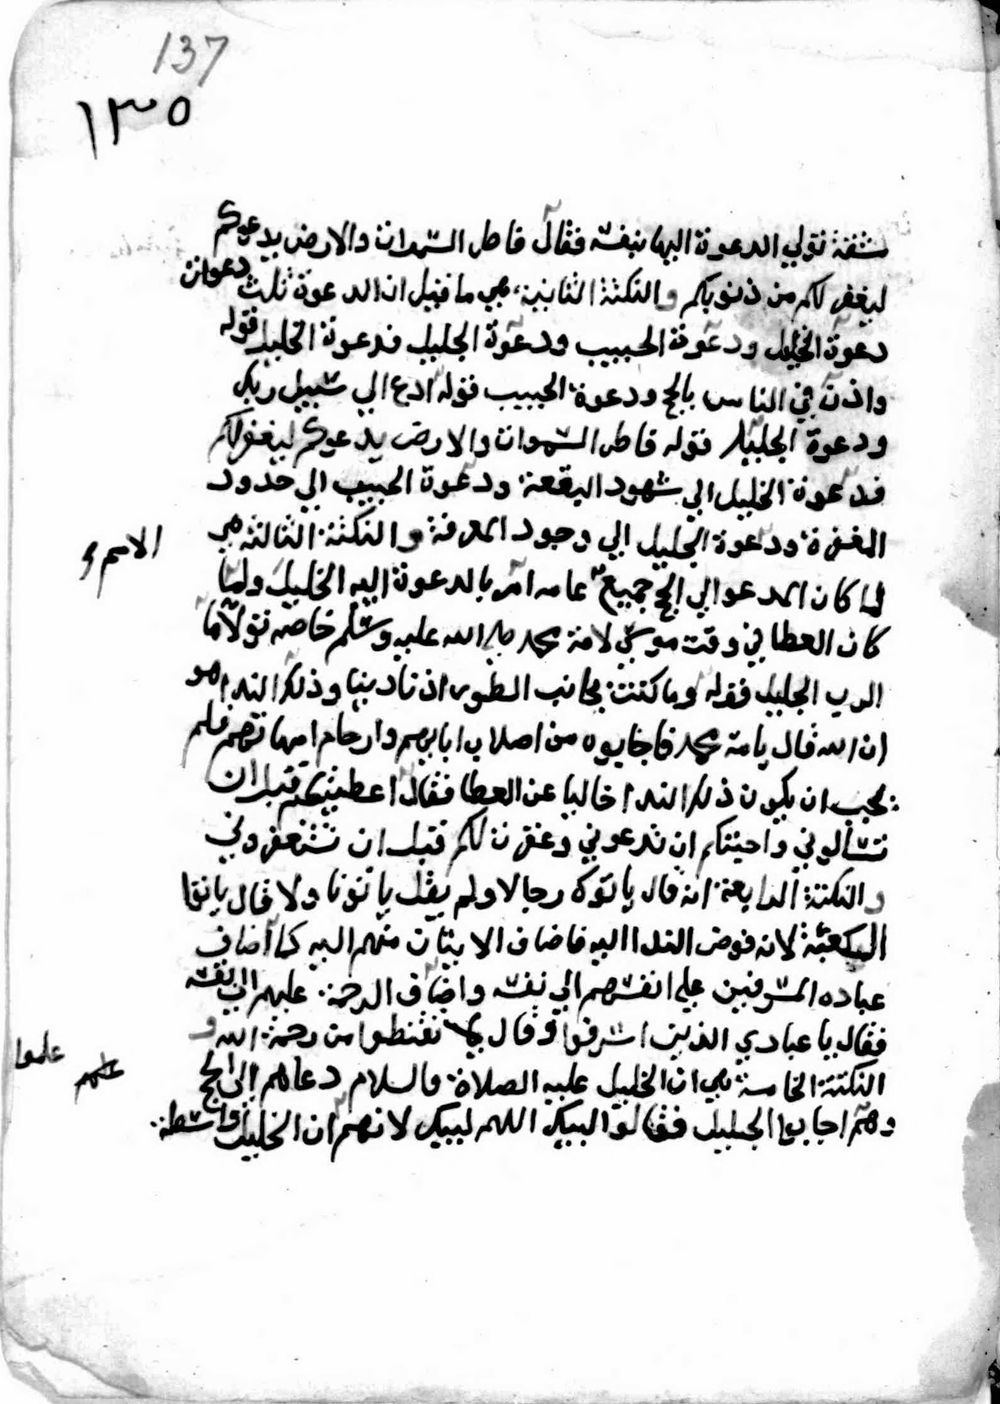 137
١٣٥
شفة تولي الدعوة اليها بنفسه فقال فاطر السموات والارض يدعوكم
ليغفر لكم من ذنوبكم والنكتة الثانية هي ما قيل ان الدعوة ثلث دعوات
دعوة الخليل ودعوة الحبيب ودعوة الجليل فدعوة الخليل قوله
واذن في الناس بالحج ودعوة الحبيب قوله ادع الي سبيل ربك
ودعوة الجليل قوله فاطر السموات والارض يدعوكم ليغفر لكم
فدعوة الخليل الي شهود البقعة ودعوة الحبيب الي حدود
المغفرة ودعوة الجليل الي وجود المعرفة والنكتة الثالثة هي
لما كان المدعو الي الحج جميع عامه امر بالدعوة اليه الخليل ولما
كان العطا في وقت موسي لامة محمد صلى الله عليه وسلم خاصه تولاها
الرب الجليل فقوله وما كنت بجانب الطور اذ نادينا وذلك الندا هو
ان الله قال يا امة محمد فاجابوه من اصلاب ابايهم وارحام امهاتهم فلم
يجب ان يكون ذلك الندا خاليا عن العطا فقال اعطيتكم قبل ان
تسالوني واجبتكم ان تدعوني وغفرت لكم قبل ان تستغفروني
والنكتة الرابعة انه قال ياتوك رجالا ولم يقل ياتونا ولا قال
الكعبة لانه فوض الندا اليه فاضاف الاتيان منهم اليه كما اضاف
عباده المسرفين علي انفسهم الي نفسه واضاف الرحمة عليهم الي نفسه
فقال يا عبادي الذين اسرفوا وقال لا تقنطوا من رحمة الله و
النكتة الخامسة هي ان الخليل عليه الصلاة والسلام دعاهم الي الحج
وهم اجابوا الجليل فقالوا لبيك اللهم لبيك لانهم ان الخليل واسطة
الامم
علموا